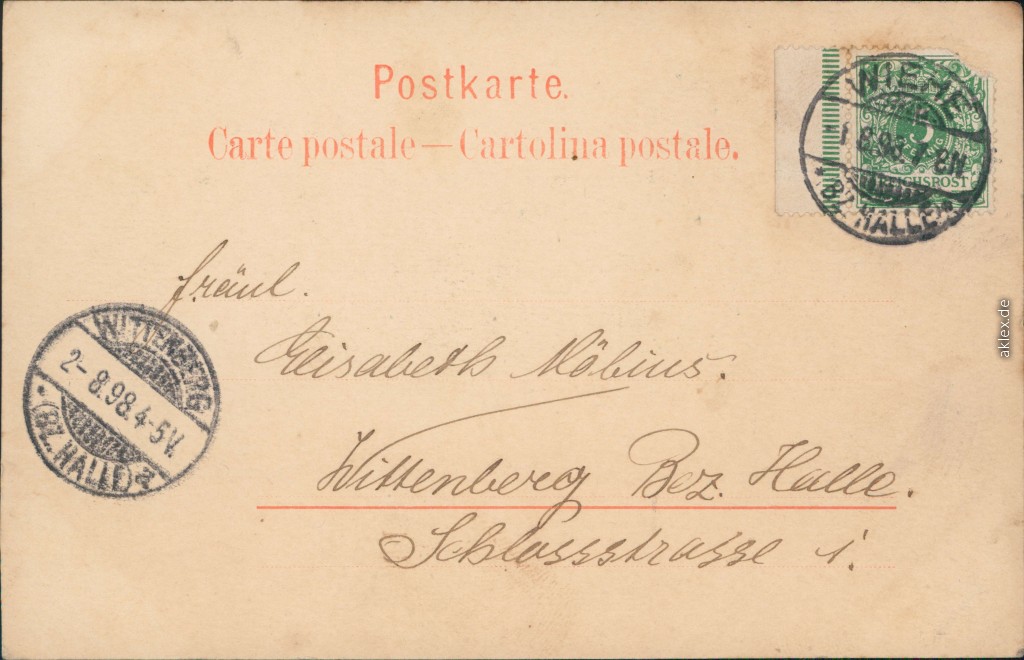 Postkarte.
Carte postale — Cartolina postale.
WIEHE
1. 8.98. 7-8N
* (BZ. HALLE) a
REICHSPOST
Fräul.
Elisabeth Möbius.
WITTENBERG
2- 8.98. 4-5V.
* (BZ. HALLE) a
Wittenberg Bez. Halle.
Schlossstrasse 1.
aklex.de